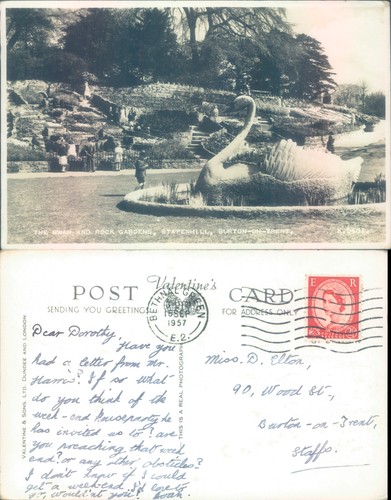 THE SWAN AND ROCK GARDENS, STAPENHILL, BURTON-ON-TRENT.
POST
Valentine's
CARD
SENDING YOU GREETINGS
FOR ADDRESS ONLY
BETHNAL GREEN
SEP
1957
E.2.
E R
VALENTINE & SONS, LTD., DUNDEE AND LONDON
THIS IS A REAL PHOTOGRAPH
Dear Dorothy,
Have you
had a letter from Mr.
Harris? If so what
do you think of the
week-end houseparty he
has invited us to? are
you preaching that week
end? or any other obstacles?
I don't know if I could
get a week-end. I'd love to
go, wouldn't you?
Miss. D. Elton,
90, Wood St.,
Burton-on-Trent,
Staffs.